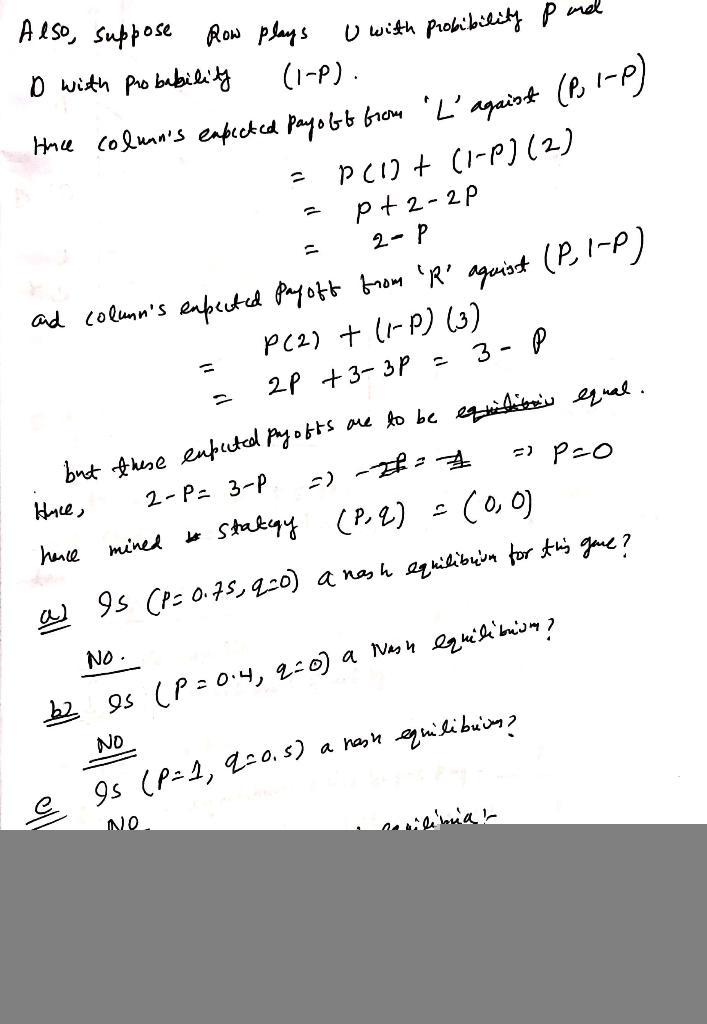 Also, suppose Row plays U with probibility P and
D with probability (1-P).
Hnce column's enpected payobb from 'L' against (P, 1-P)
= P(1) + (1-P)(2)
= P + 2 - 2P
= 2 - P
and column's enpected payobb from 'R' against (P, 1-P)
= P(2) + (1-P) (3)
= 2P + 3 - 3P = 3 - P
but these enpected payobbs are to be equal.
Hnce, 2-P = 3-P => => P=0
hence mined stategy (P,q) = (0,0)
a) Is (P=0.75, q=0) a nash equilibrium for this game?
NO.
b) Is (P=0.4, q=0) a Nash equilibrium?
NO
c Is (P=1, q=0.5) a nash equilibrium?
NO